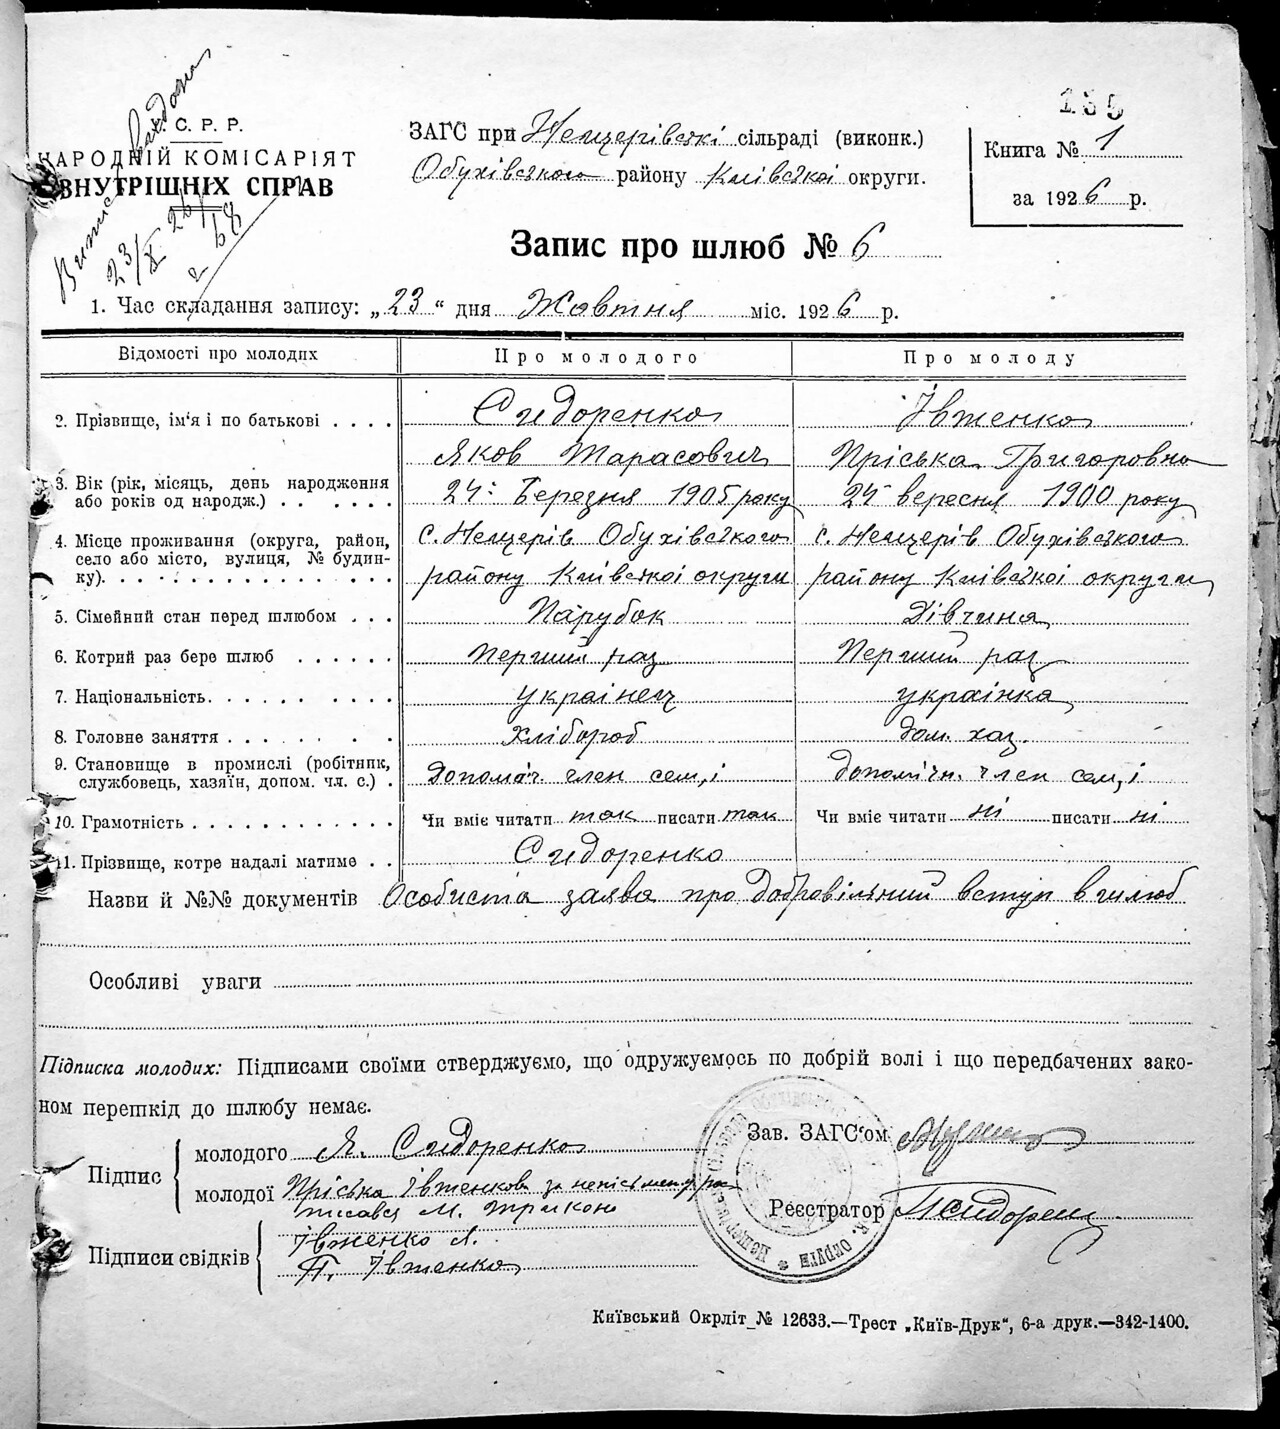 Виписка видана
23/X 26 р.
2/68
С. Р. Р.
НАРОДНІЙ КОМІСАРІЯТ
ВНУТРІШНІХ СПРАВ
ЗАГС при Нещерівські сільраді (виконк.)
Обухівського району Київської округи.
135
Книга № 1
за 1926 р.
Запис про шлюб № 6
1. Час складання запису: „23“ дня Жовтня міс. 1926 р.
Відомості про молодих Про молодого Про молоду
2. Прізвище, ім'я і по батькові Сидоренко Івженко
Яков Тарасович Пріська Григоровна
3. Вік (рік, місяць, день народження 24: Березня 1905 року 24 вересня 1900 року
або років од народж.)
4. Місце проживання (округа, район, с. Нещерів Обухівського с. Нещерів Обухівського
село або місто, вулиця, № будин-
ку). району Київської округи району Київської округи
5. Сімейний стан перед шлюбом Парубок Дівчина
6. Котрий раз бере шлюб Перший раз Перший раз
7. Національність українец українка
8. Головне заняття Хлібороб дом. хаз.
9. Становище в промислі (робітник, допомач. член сем,і допомічн. член сем,і
службовець, хазяїн, допом. чл. с.)
10. Грамотність Чи вміє читати так писати так Чи вміє читати ні писати ні
11. Прізвище, котре надалі матиме Сидоренко
Назви й №№ документів Особиста заява про добровільний вступ в шлюб
Особливі уваги
Підписка молодих: Підписами своїми стверджуємо, що одружуємось по добрій волі і що передбачених зако-
ном перешкід до шлюбу немає.
Підпис
молодого Я. Сидоренко
молодої Пріська Івженкова за неписьмену рос
писався М. Трикоз
Підписи свідків
Івженко Я.
П. Івженко
Зав. ЗАГС'ом
Реєстратор
Київський Окрліт № 12633.—Трест „Київ-Друк“, 6-а друк.—342-1400.